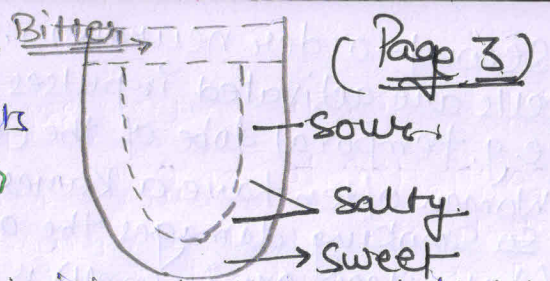 Bitter
(Page 3)
Sour
Salty
Sweet